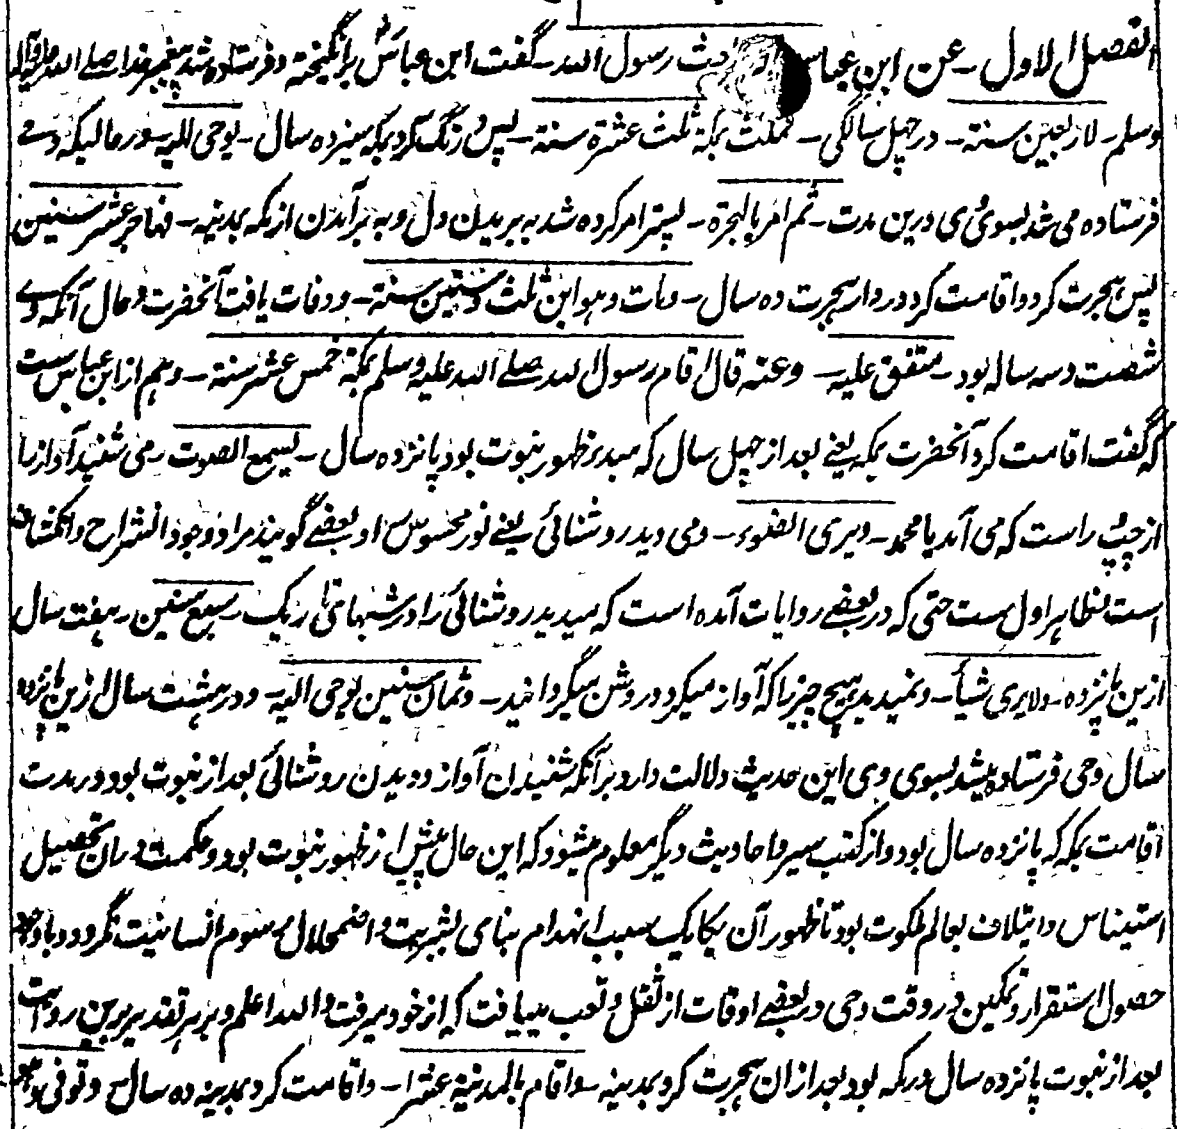 الفصل الاول ۔ عن ابن عباس رسول الله ۔ گفت ابن عباس برانگیخته و فرستاده شد پیغمبر خدا صلے الله علیه و آله
وسلم ۔ لاربعین سنة ۔ در چهل سالگی ۔ فمکث بمکة ثلث عشرة سنة ۔ پس درنگ کرد بمکه سیزده سال ۔ یوحی الیه ۔ در حالیکه وحے
فرستاده می شد بسوی وی درین مدت ۔ ثم امر بالهجرة ۔ پستر امر کرده شد به بریدن دل و به برآمدن از مکه بمدینه ۔ فهاجر عشر سنین
پس هجرت کرد و اقامت کرد در دار هجرت ده سال ۔ ومات وهو ابن ثلث وستین سنة ۔ و وفات یافت آنحضرت و حال آنکه وے
شصت و سه ساله بود ۔ متفق علیه ۔ وعنه قال اقام رسول الله صلے الله علیه وسلم بمکة خمس عشر سنة ۔ و هم از ابن عباس ست
که گفت اقامت کرد آنحضرت بمکه یعنے بعد از چهل سال که مبدء ظهور نبوت بود پانزده سال ۔ یسمع الصوت ۔ می شنید آواز را
از چپ و راست که می آمد یا محمد ۔ ویری الضوء ۔ و می دید روشنائی یعنے نور محسوس و بعضے گویند مراد وجود انشراح و انکشاف
است و ظاهر اول ست حتی که در بعضے روایات آمده است که میدید روشنائی را در شبهای تاریک ۔ سبع سنین ۔ هفت سال
ازین پانزده ۔ ولا یری شیأ ۔ و نمیدید هیچ چیز را که آواز میکرد و روشن میگردانید ۔ وثمان سنین یوحی الیه ۔ و در هشت سال ازین پانزده
سال وحی فرستاده میشد بسوی وی این حدیث دلالت دارد برآنکه شنیدن آواز و دیدن روشنائی بعد از نبوت بود در مدت
اقامت بمکه که پانزده سال بود و از کتب سیر و احادیث دیگر معلوم میشود که این حال پیش از ظهور نبوت بود و حکمت دران تحصیل
استیناس و ایتلاف بعالم ملکوت بود تا ظهور آن یکایک سبب انهدام بنای بشریت و اضمحلال رسوم انسانیت نگردد و با وجود
حصول استقرار و تمکین در وقت وحی در بعضے اوقات از ثقل و تعب مییافت که از خود میرفت والله اعلم و بر هر تقدیر برین روایت
بعد از نبوت پانزده سال در مکه بود بعد ازان هجرت کرد بمدینه ۔ واقام بالمدینة عشرا ۔ و اقامت کرد بمدینه ده سال ۔ وتوفی وهو